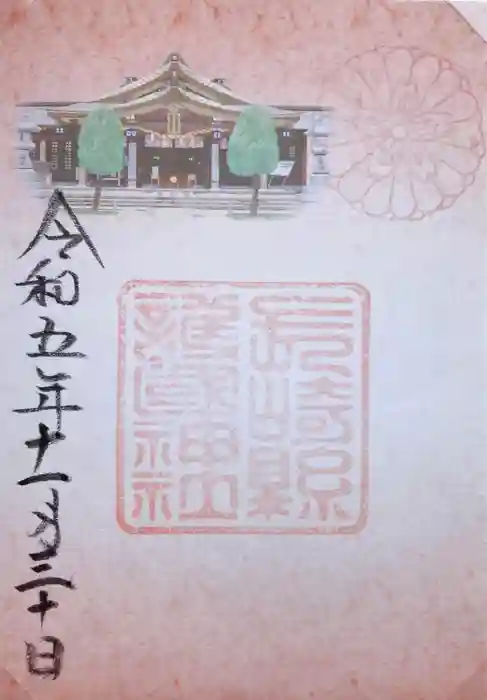 長崎縣
護國神社
令和五年十一月三十日